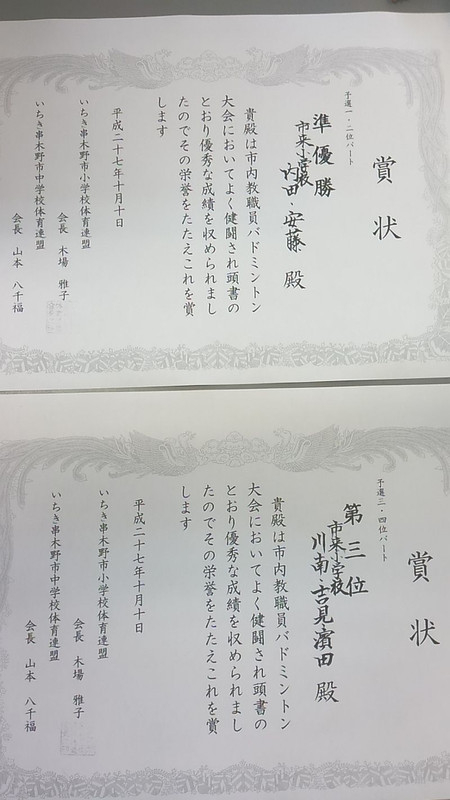 賞状
予選一・二位パート
準優勝
市来小学校
内田・安藤 殿
貴殿は市内教職員バドミントン
大会においてよく健闘され頭書の
とおり優秀な成績を収められまし
たのでその栄誉をたたえこれを賞
します
平成二十七年十月十日
いちき串木野市小学校体育連盟
会長 木場 雅子
いちき串木野市中学校体育連盟
会長 山本 八千福
賞状
予選三・四位パート
第三位
市来小学校
川南・吉見・濱田 殿
貴殿は市内教職員バドミントン
大会においてよく健闘され頭書の
とおり優秀な成績を収められまし
たのでその栄誉をたたえこれを賞
します
平成二十七年十月十日
いちき串木野市小学校体育連盟
会長 木場 雅子
いちき串木野市中学校体育連盟
会長 山本 八千福